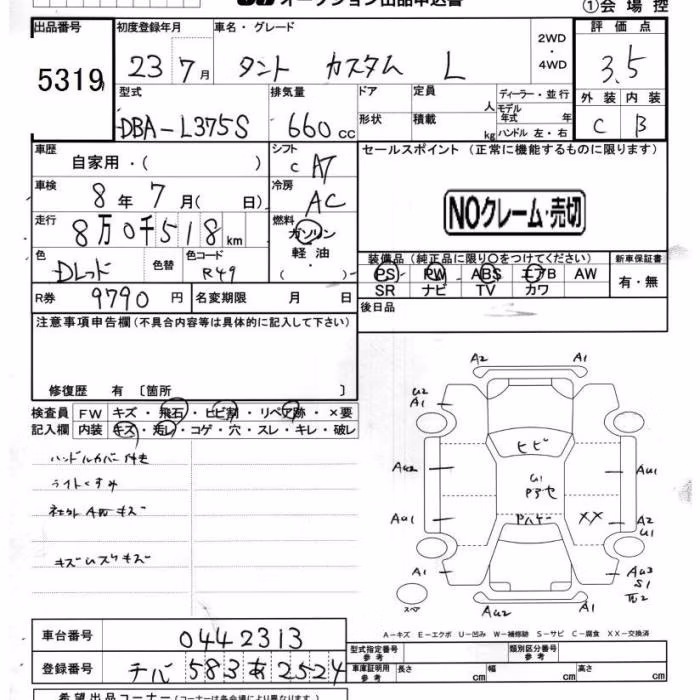 オークション出品申込書
①会場控
出品番号 5319
初度登録年月 23年 7月
車名・グレード タント カスタム L
2WD・4WD
評価点 3.5
外装 C 内装 B
型式 DBA-L375S
排気量 660cc
ドア
形状
定員 人
積載 kg
ディーラー・並行
モデル年式 年
ハンドル 左・右
車歴 自家用・( )
シフト C AT
車検 8年 7月( 日)
冷房 AC
走行 8万0千518km
燃料 ガソリン 軽油 ( )
色 Dレッド 色替
色コード R49
R券 9790円
名変期限 月 日
セールスポイント (正常に機能するものに限ります)
NOクレーム・売切
装備品(純正品に限り○をつけてください)
PS PW ABS エアB AW
SR ナビ TV カワ
新車保証書 有・無
後日品
注意事項申告欄(不具合内容等は具体的に記入して下さい)
修復歴 有 〔箇所 〕
検査員記入欄
FW キズ・飛石・ヒビ割・リペア跡・×要
内装 キズ・汚レ・コゲ・穴・スレ・キレ・破レ
ハンドルカバー付き
ライトくすみ
社外AWキズ
A2 A1
U2
A1
ヒビ
AU2 U1 AU1
AU1 XX A2
U1
A1 AU3
S1
スペア AU2 A1
A-キズ E-エクボ U-凹み W-補修跡 S-サビ C-腐食 XX-交換済
車台番号 0442313
登録番号 チバ 583 あ 2524
型式指定番号 参考
類別区分番号 参考
車庫証明用 参考 長さ cm 幅 cm 高さ cm
希望出品コーナー (コーナーは各会場により異なります。)